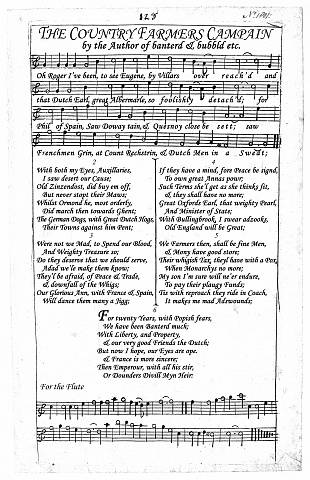 128
THE COUNTRY FARMERS CAMPAIN
by the Author of banterd & bubbld etc.
Oh Roger I've been, to see Eugene, by Villars over reach'd and
that Dutch Earl, great Albermarle, so foolishly detach'd; for
Phil of Spain, Saw Doway tain, & Quesnoy close be sett; saw
Frenchmen Grin, at Count Rechstrin, & Dutch Men in a Sweat;
2
With both my Eyes, Auxillaries,
I saw desert our Cause;
Old Zinzendost, did buy em off,
But never stopt their Maws;
Whilst Ormond he, most orderly,
Did march then towards Ghent;
The German Dogs, with Great Dutch Hogs,
Their Towns against him Pent;
3
Were not we Mad, to Spend our Blood,
And Weighty Treasure so;
Do they deserve that we should serve,
Adad we'le make them know;
They'l be afraid, of Peace & Trade,
& downfall of the Whigs;
Our Glorious Ann, with France & Spain,
Will dance them many a Jigg;
4
If they have a mind, fore Peace be signd,
To own great Annas powr;
Such Terms she'l get as she thinks fit,
of they shall have no more;
Great Oxfords Earl, that weighty Pearl,
And Minister of State;
With Bullingbrook, I swear adzooks,
Old England will be Great;
5
We Farmers then, shall be fine Men,
& Mony have good store;
Their whigish Tax, they have with a Pox,
When Monarchys no more;
My son I'm sure will ne'er endure,
To pay their plaugy Funds;
Tis with reproach they ride in Coach,
It makes me mad Adswounds;
6
For twenty Years, with Popish fears,
We have been Banterd muck;
With Liberty, and Property,
& our very good Friends the Dutch;
But now I hope, our Eyes are ope.
& France is more sincere;
Then Emperour, with all his stir,
Or Dounders Divill Myn Heir:
For the Flute